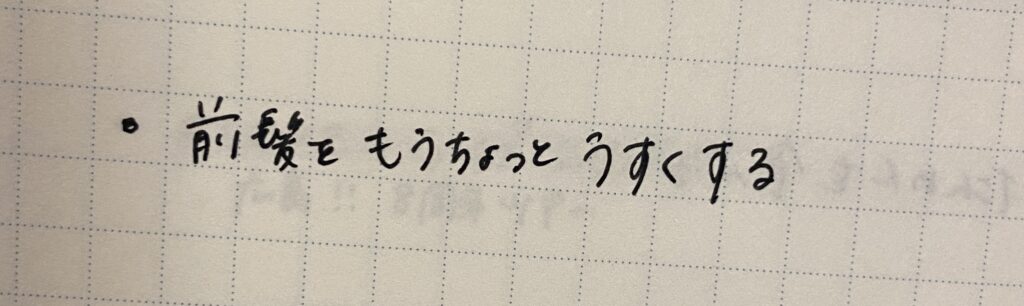 ・前髪をもうちょっとうすくする